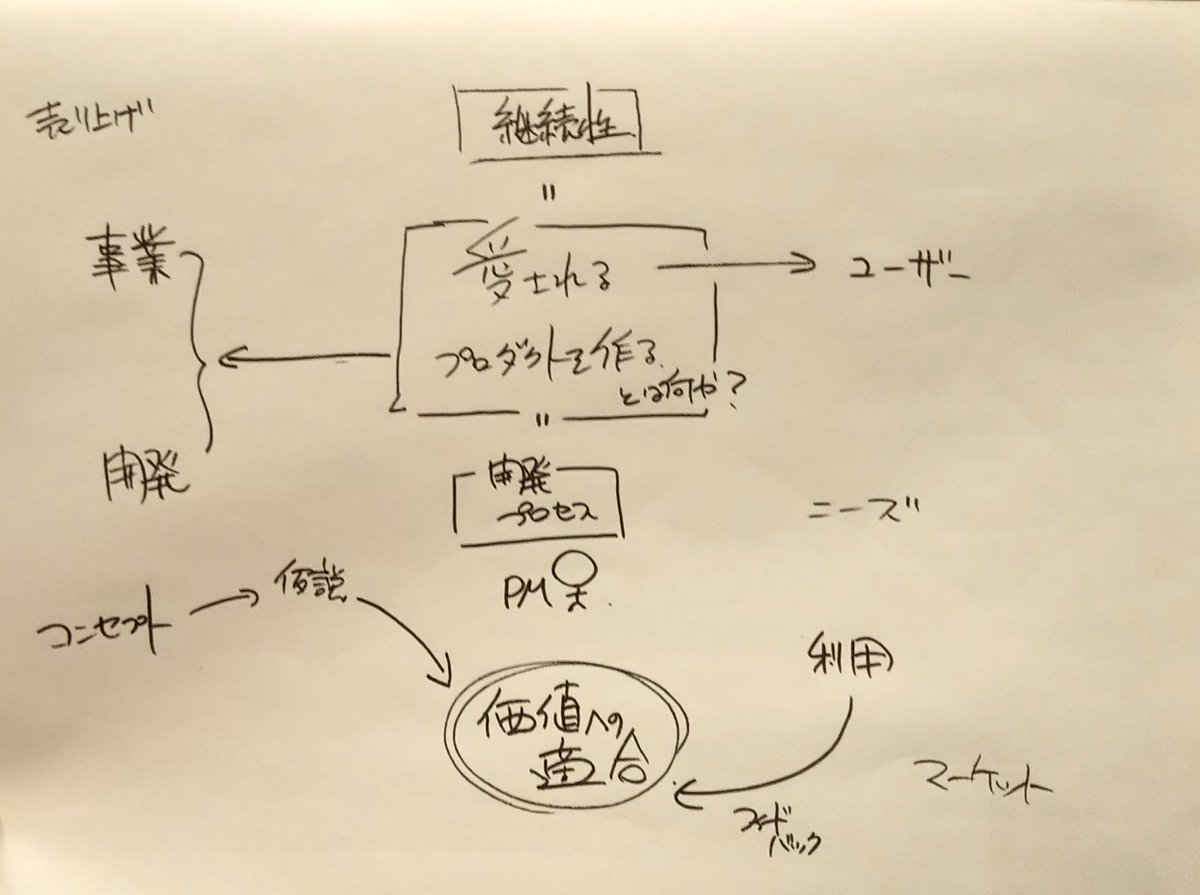 売り上げ
継続性
事業
愛される
ユーザー
プロダクトを作る
とは何か?
開発
開発
プロセス
ニーズ
PM
コンセプト
仮説
利用
価値への
適合
マーケット
フィードバック